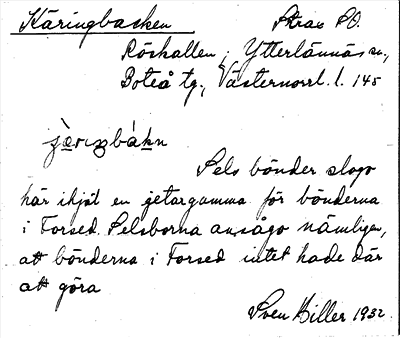 Käringbacken Strax SO.
Röskallen, Ytterlännäs sn,
Boteå tg., Västernorrl. l. 145
Sels bönder slogo
här ihjäl en getargumma för bönderna
i Forsed. Selsborna ansågo nämligen,
att bönderna i Forsed intet hade där
att göra
Sven Hiller 1932.